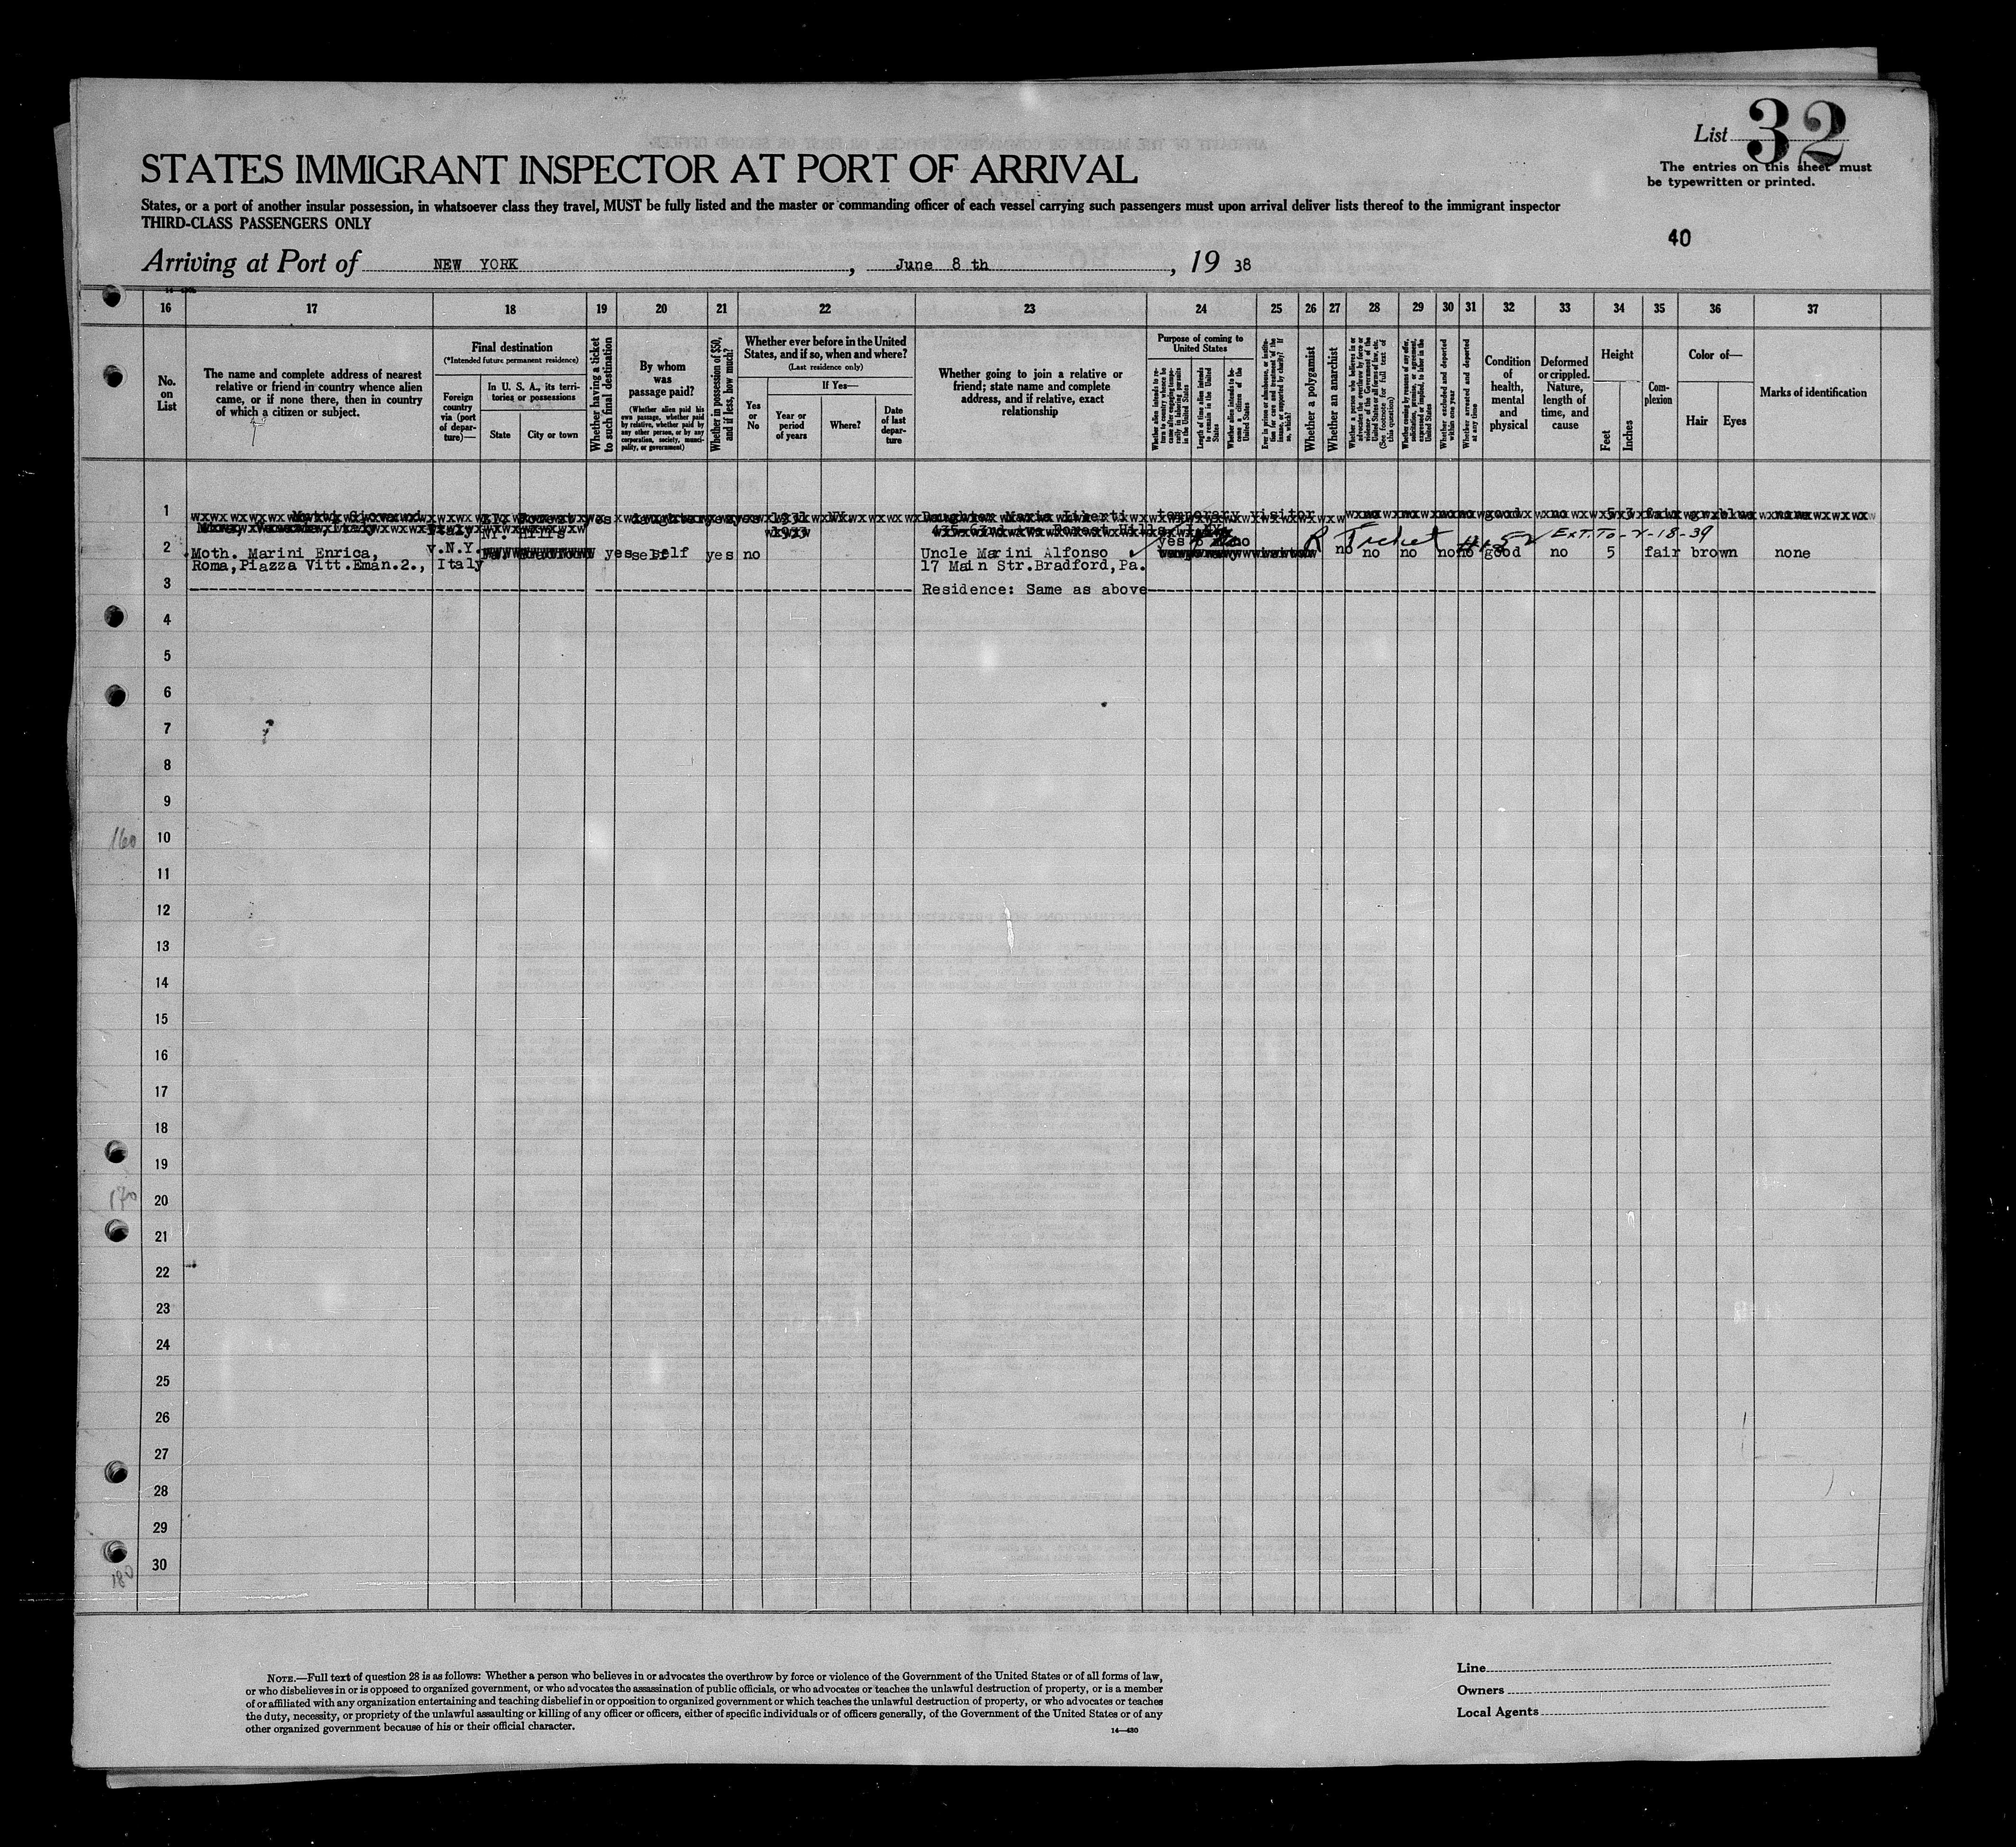 List 32
The entries on this sheet must
be typewritten or printed.
STATES IMMIGRANT INSPECTOR AT PORT OF ARRIVAL
States, or a port of another insular possession, in whatsoever class they travel, MUST be fully listed and the master or commanding officer of each vessel carrying such passengers must upon arrival deliver lists thereof to the immigrant inspector
THIRD-CLASS PASSENGERS ONLY
40
Arriving at Port of NEW YORK, June 8 th, 19 38
16 17 18 19 20 21 22 23 24 25 26 27 28 29 30 31 32 33 34 35 36 37
No. on List
The name and complete address of nearest
relative or friend in country whence alien
came, or if none there, then in country
of which a citizen or subject.
Final destination
(*Intended future permanent residence)
Foreign country via (port of departure)—
In U. S. A., its territories or possessions
State
City or town
Whether having a ticket to such final destination
By whom was passage paid?
(Whether alien paid his own passage, whether paid by relative, whether paid by any other person, or by any corporation, society, municipality, or government)
Whether in possession of $50, and if less, how much?
Whether ever before in the United States, and if so, when and where?
(Last residence only)
Yes or No
If Yes—
Year or period of years
Where?
Date of last departure
Whether going to join a relative or
friend; state name and complete
address, and if relative, exact
relationship
Purpose of coming to United States
Whether alien intends to return to country whence he came after engaging temporarily in laboring pursuits in the United States
Length of time alien intends to remain in the United States
Whether alien intends to become a citizen of the United States
Ever in prison or almshouse, or institution for care and treatment of the insane, or supported by charity? If so, which?
Whether a polygamist
Whether an anarchist
Whether a person who believes in or advocates the overthrow by force or violence of the Government of the United States or all forms of law, etc. (See footnote for full text of this question)
Whether coming by reason of any offer, solicitation, promise, or agreement, expressed or implied, to labor in the United States
Whether excluded and deported within one year
Whether arrested and deported at any time
Condition of health, mental and physical
Deformed or crippled. Nature, length of time, and cause
Height
Feet
Inches
Complexion
Color of—
Hair
Eyes
Marks of identification
1
Daughter Maria Liberti temporary visitor
NY. Hills
2 Moth. Marini Enrica, v.N.Y. yes self yes no Uncle Marini Alfonso yes no R Ticket Ext. To-2-18-39 no no no no no good no 5 fair brown none
Roma,Piazza Vitt.Eman.2., Italy 17 Main Str.Bradford,Pa.
3 Residence: Same as above
4
5
6
7
8
9
160 10
11
12
13
14
15
16
17
18
19
170 20
21
22
23
24
25
26
27
28
29
180 30
NOTE.—Full text of question 28 is as follows: Whether a person who believes in or advocates the overthrow by force or violence of the Government of the United States or of all forms of law,
or who disbelieves in or is opposed to organized government, or who advocates the assassination of public officials, or who advocates or teaches the unlawful destruction of property, or is a member
of or affiliated with any organization entertaining and teaching disbelief in or opposition to organized government or which teaches the unlawful destruction of property, or who advocates or teaches
the duty, necessity, or propriety of the unlawful assaulting or killing of any officer or officers, either of specific individuals or of officers generally, of the Government of the United States or of any
other organized government because of his or their official character.
14—430
Line
Owners
Local Agents